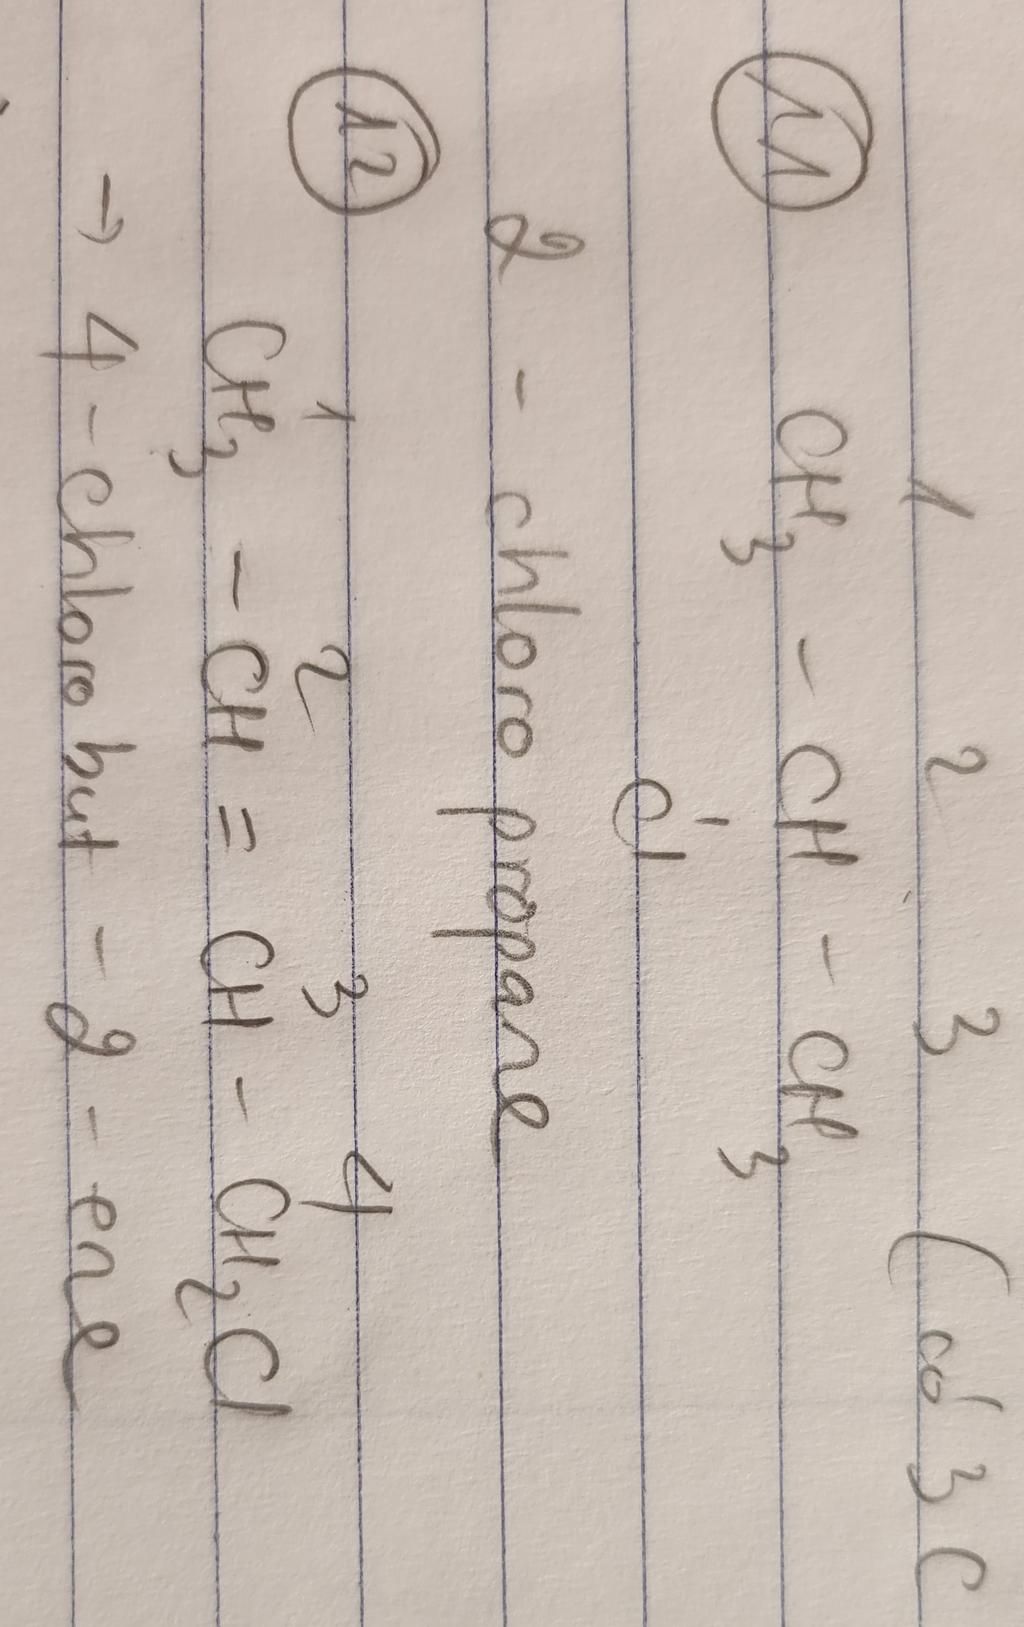 1 2 3 (có 3 C
11 CH3 - CH - CH3
Cl
2 - chloropropane
12 1 2 3 4
CH3 - CH = CH - CH2Cl
→ 4 - chlorobut - 2 - ene